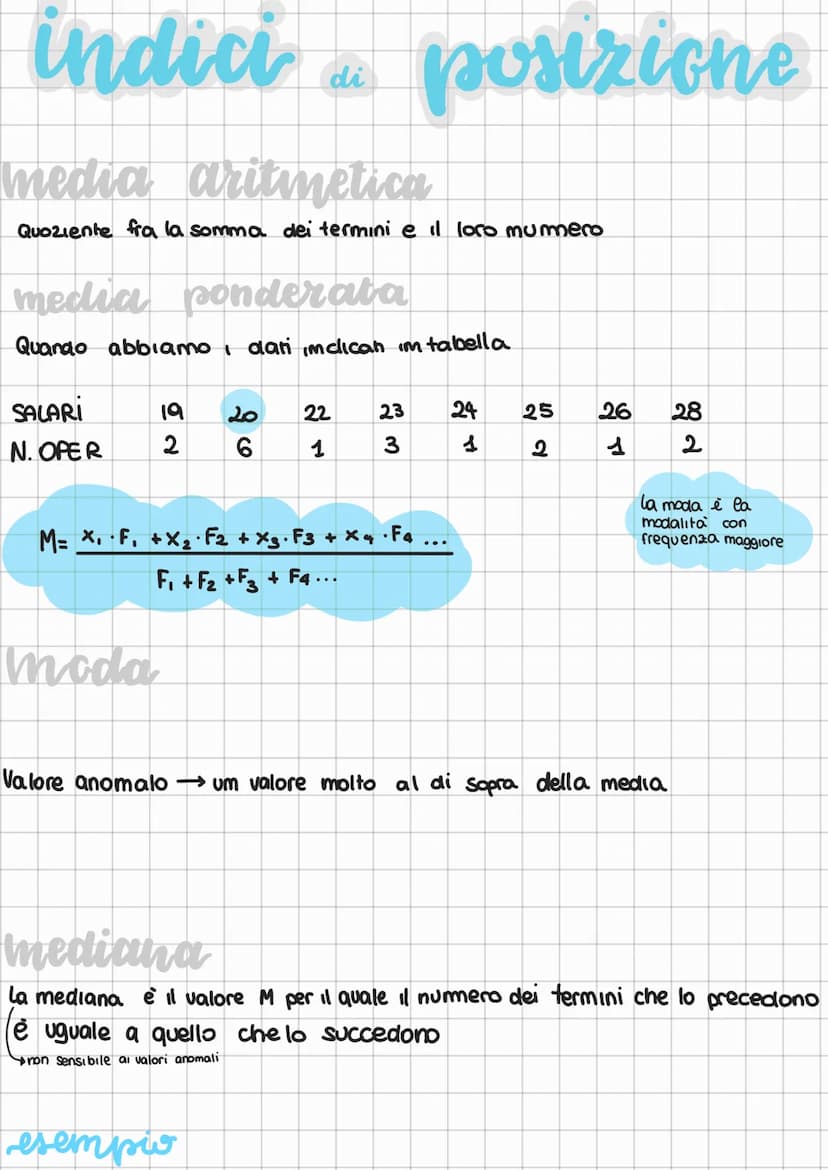 indici di posizione
media aritmetica
Quoziente fra la somma dei termini e il loro numero
media ponderata
Quando abbiamo i dati indicati in tabella
SALARI 19 20 22 23 24 25 26 28
N. OPER 2 6 1 3 1 2 1 2
la moda è la
modalità con
frequenza maggiore
M= x₁·F₁ + x₂·F₂ + x₃·F₃ + x₄·F₄ ...
F₁ + F₂ + F₃ + F₄ ...
moda
Valore anomalo → un valore molto al di sopra della media
mediana
La mediana è il valore M per il quale il numero dei termini che lo precedono
è uguale a quello che lo succedono
→ non sensibile ai valori anomali
esempio